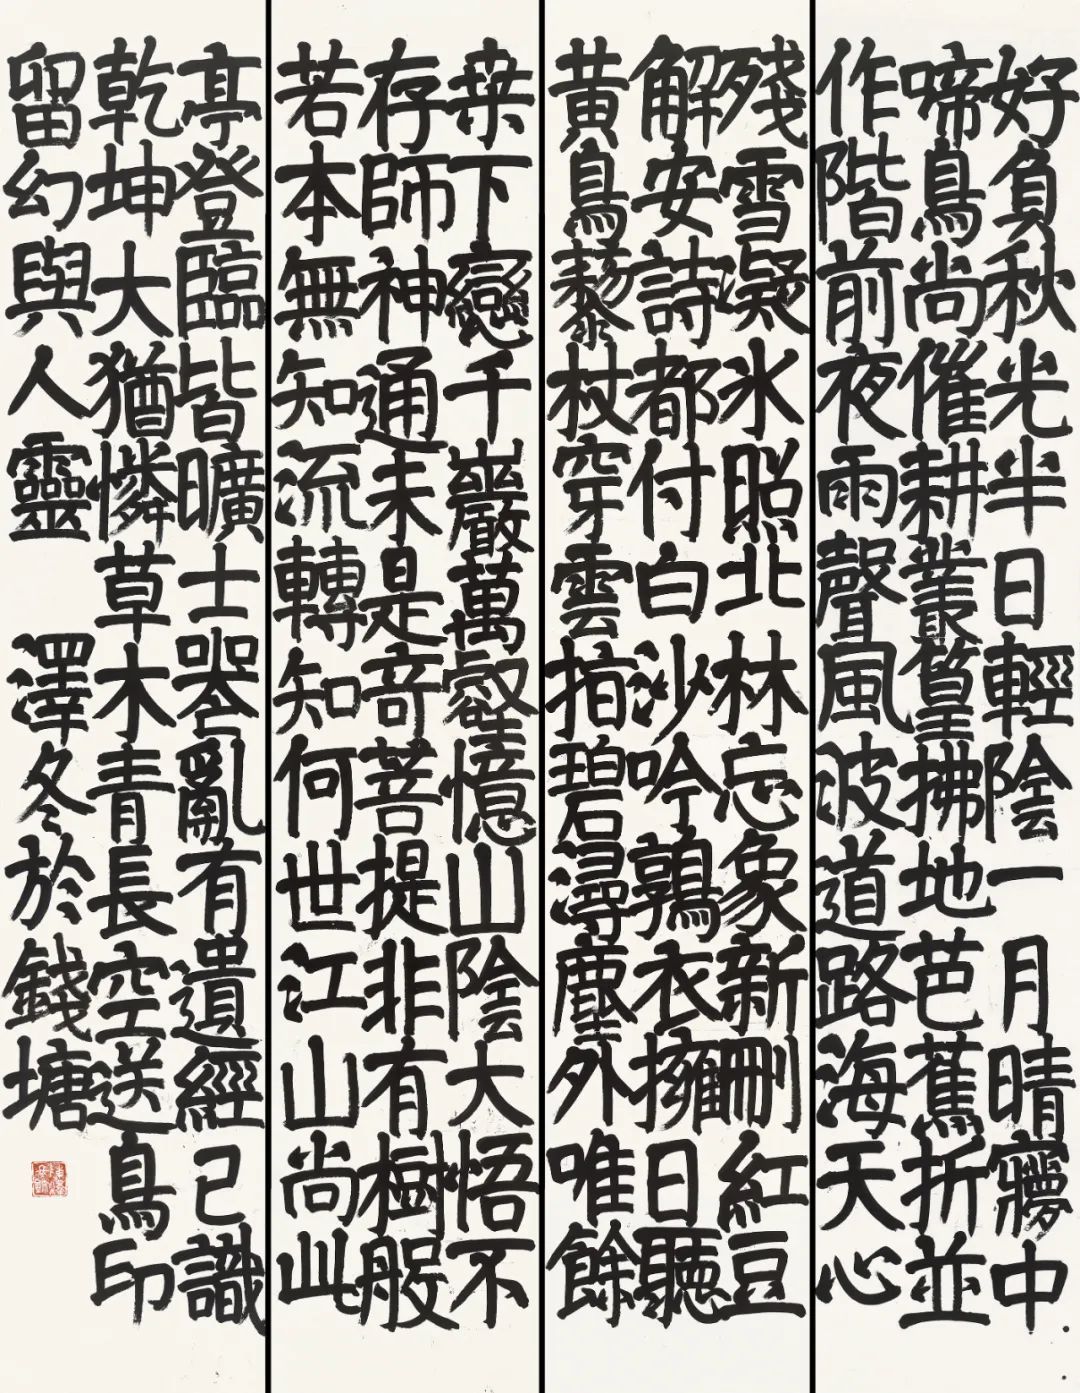 好負秋光半日輕陰一月晴寱中
啼鳥尚催耕叢篁拂地芭蕉折並
作階前夜雨聲風波道路海天心
殘雪凝氷照北林忘象新刪紅豆
解安詩都付白沙吟鶉衣擁日聽
黃鳥藜杖穿雲拍碧潯塵外唯餘
桒下戀千巖萬壑憶山陰大悟不
存師神通未是奇菩提非有樹般
若本無知流轉知何世江山尚此
亭登臨皆曠士喪亂有遺經已識
乾坤大猶憐草木青長空送鳥印
留幻與人靈 澤冬於錢塘